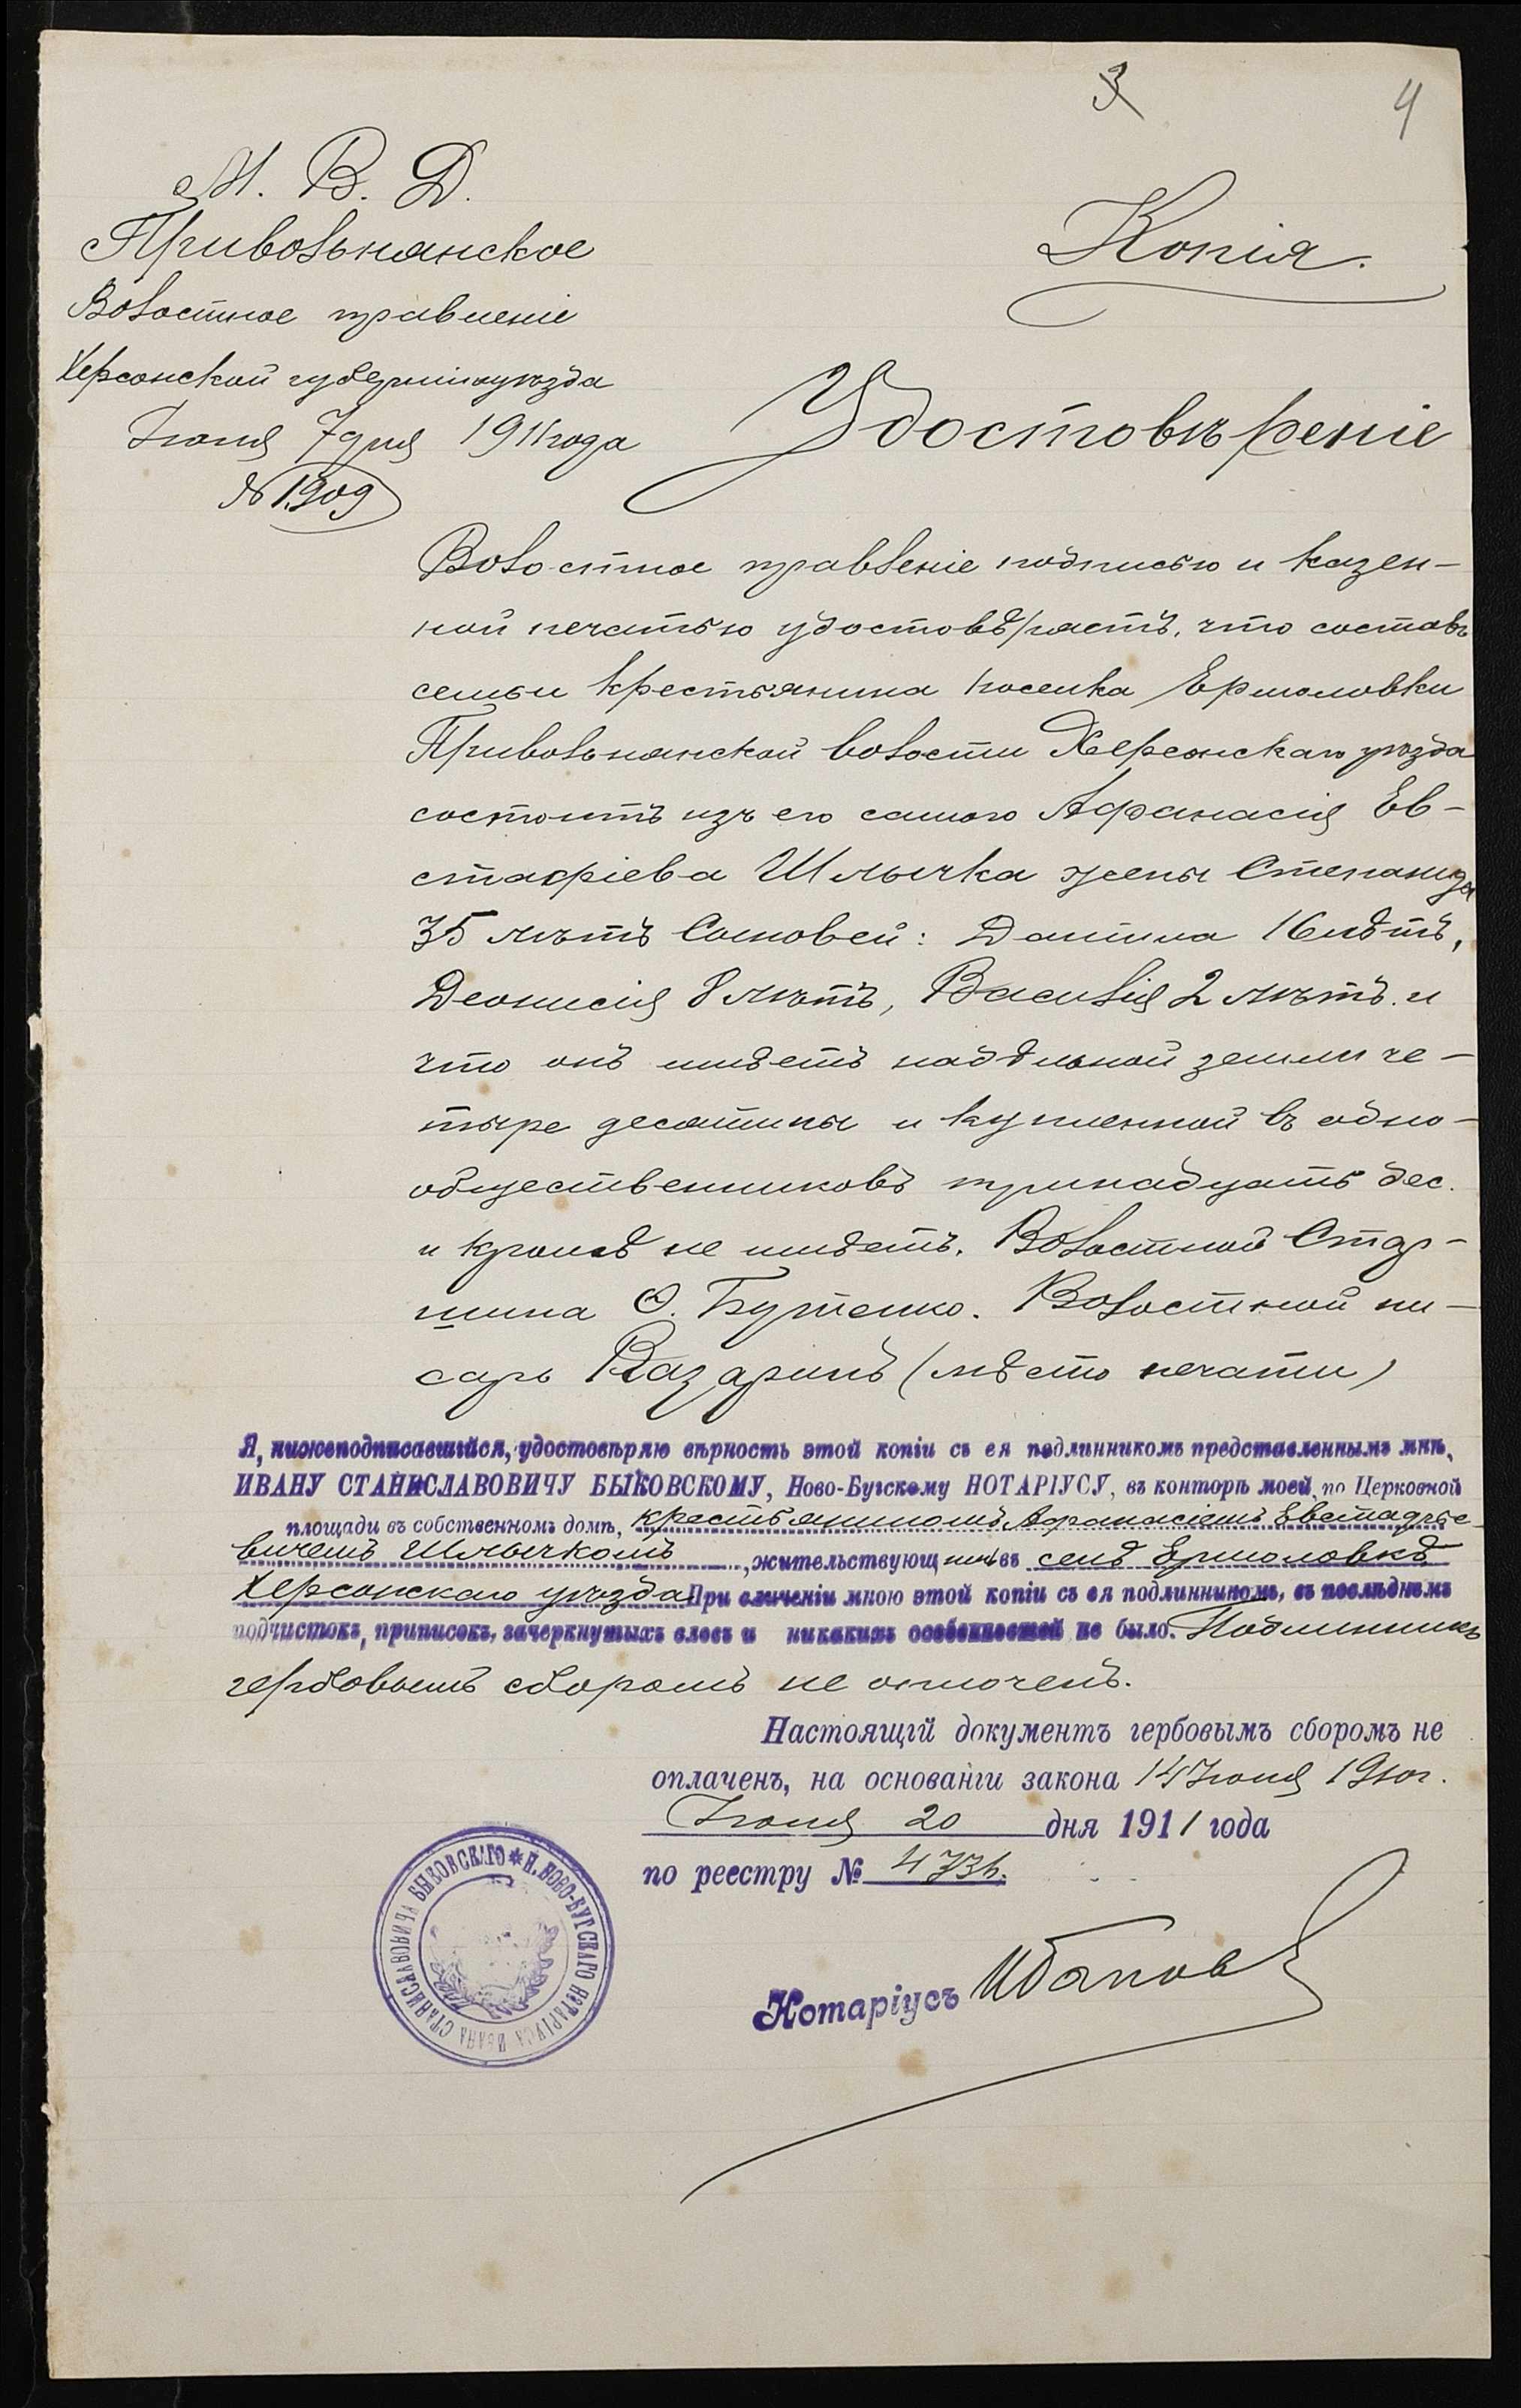 3
4
М. В. Д.
Привольнянское
Волостное правленіе
Херсонской губерніи и уѣзда
Іюня 7 дня 1911 года
№ 1909
Копія.
Удостовѣреніе
Волостное правленіе подписью и казен-
ной печатью удостовѣряетъ, что составъ
семьи крестьянина поселка Ермоловки
Привольнянской волости Херсонскаго уѣзда
состоитъ изъ его самого Афанасія Ев-
стафіева Шлычка жены Степанида
35 лѣтъ Сыновей: Данила 16 лѣтъ,
Деонисія 8 лѣтъ, Василія 2 лѣтъ. и
что онъ имѣетъ надѣльной земли че-
тыре десятины и купленной въ одно-
общественниковъ тринадцать дес.
и кромѣ не имѣетъ. Волостной Стар-
шина Ѳ. Бутенко. Волостной пи-
сарь (мѣсто печати)
Я, нижеподписавшійся, удостовѣряю вѣрность этой копіи съ ея подлинникомъ представленнымъ мнѣ,
ИВАНУ СТАНИСЛАВОВИЧУ БЫКОВСКОМУ, Ново-Бугскому НОТАРІУСУ, въ конторѣ моей, по Церковной
площади въ собственномъ домѣ, крестьяниномъ Афанасіемъ Евстафіе-
вичемъ Шлычкомъ, жительствующимъ въ селѣ Ермоловкѣ
Херсонскаго уѣзда При сличеніи мною этой копіи съ ея подлинникомъ, въ послѣднемъ
подчистокъ, приписокъ, зачеркнутыхъ словъ и никакихъ особенностей не было. Подлинникъ
гербовымъ сборомъ не оплоченъ.
Настоящій документъ гербовымъ сборомъ не
оплаченъ, на основаніи закона 14 Іюня 1910 г.
Іюня 20 дня 1911 года
по реестру № 4736.
Н. НОВО-БУГСКАГО НОТАРІУСА ИВАНА СТАНИСЛАВОВИЧА БЫКОВСКАГО
Нотаріусъ